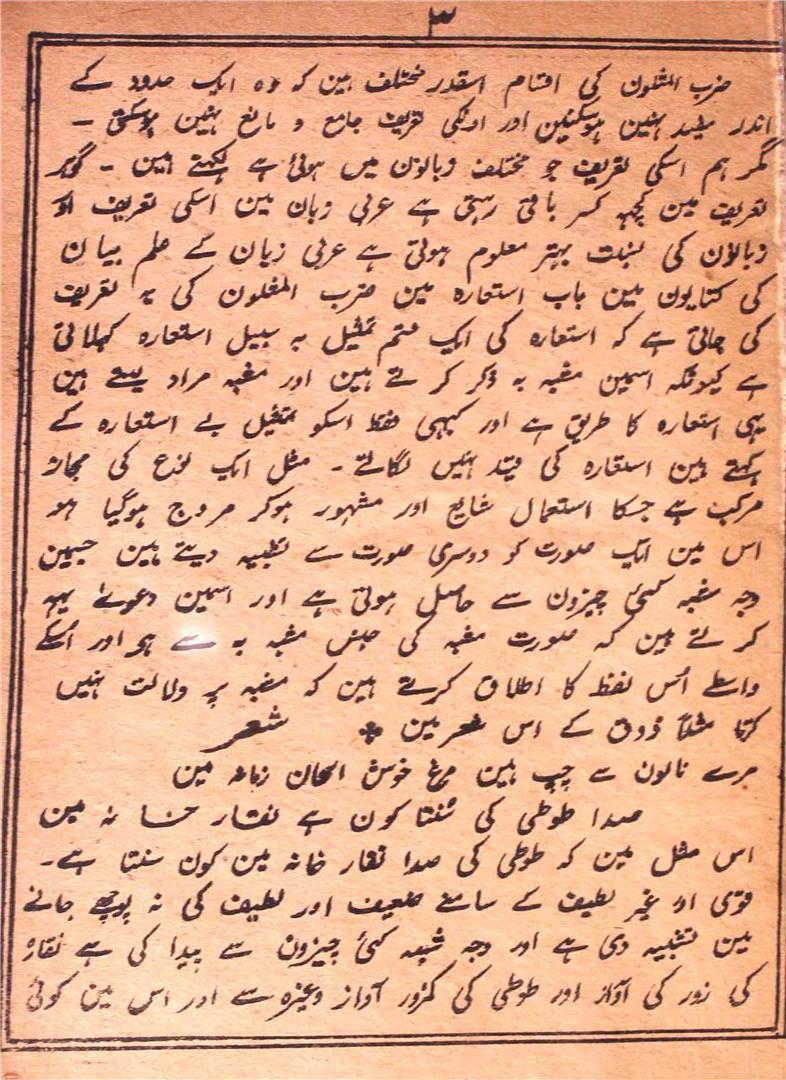 ۳
ضرب المثلون کی اقسام اسقدر مختلف ہین کہ وہ ایک حدود کے
اندر مقید نہین ہوسکتین اور انکی تعریف جامع و مانع نہین ہوسکتی -
مگر ہم اسکی تعریف جو مختلف زبانون میں ہوئی ہے لکھتے ہین - گو ہر
تعریف مین کچہہ کسر باقی رہتی ہے عربی زبان مین اسکی تعریف اور
زبانون کی نسبت بہتر معلوم ہوتی ہے عربی زبان کے علم بیان
کی کتابون مین باب استعارہ مین ضرب المثلون کی یہ تعریف
کی جاتی ہے کہ استعارہ کی ایک قسم تمثیل بہ سبیل استعارہ کہلاتی
ہے کیونکہ اسمین مشبہ بہ ذکر کرتے ہین اور مشبہ مراد لیتے ہین
یہی استعارہ کا طریق ہے اور کبہی فقط اسکو تمثیل بے استعارہ کے
کہتے ہین استعارہ کی قید نہیں لگاتے - مثل ایک نوع کی مجاز
مرکب ہے جسکا استعمال شایع اور مشہور ہوکر مروج ہوگیا ہو
اس مین ایک صورت کو دوسری صورت سے تشبیہ دیتے ہین جسمین
وجہ مشبہ کئی چیزون سے حاصل ہوتی ہے اور اسمین دعوےٰ یہہ
کرتے ہین کہ صورت مشبہ کی جنس مشبہ بہ سے ہو اور اُسکے
واسطے اُس لفظ کا اطلاق کرتے ہین کہ مشبہ پر دلالت نہیں
کرتا مثلاً ذوق کے اس شعر مین * شعر
مرے نالون سے چپ ہین مرغ خوش الحان زمانہ مین
صدا طوطی کی سُنتا کون ہے نقار خانہ مین
اس مثل مین کہ طوطی کی صدا نقار خانہ مین کون سنتا ہے-
قوی اور غیر لطیف کے سامنے ضعیف اور لطیف کی نہ پوچھے جانے
مین تشبیہ دی ہے اور وجہ شبہہ کئی چیزون سے پیدا کی ہے نقارہ
کی زور کی آواز اور طوطی کی کمزور آواز وغیرہ سے اور اس مین کوئی